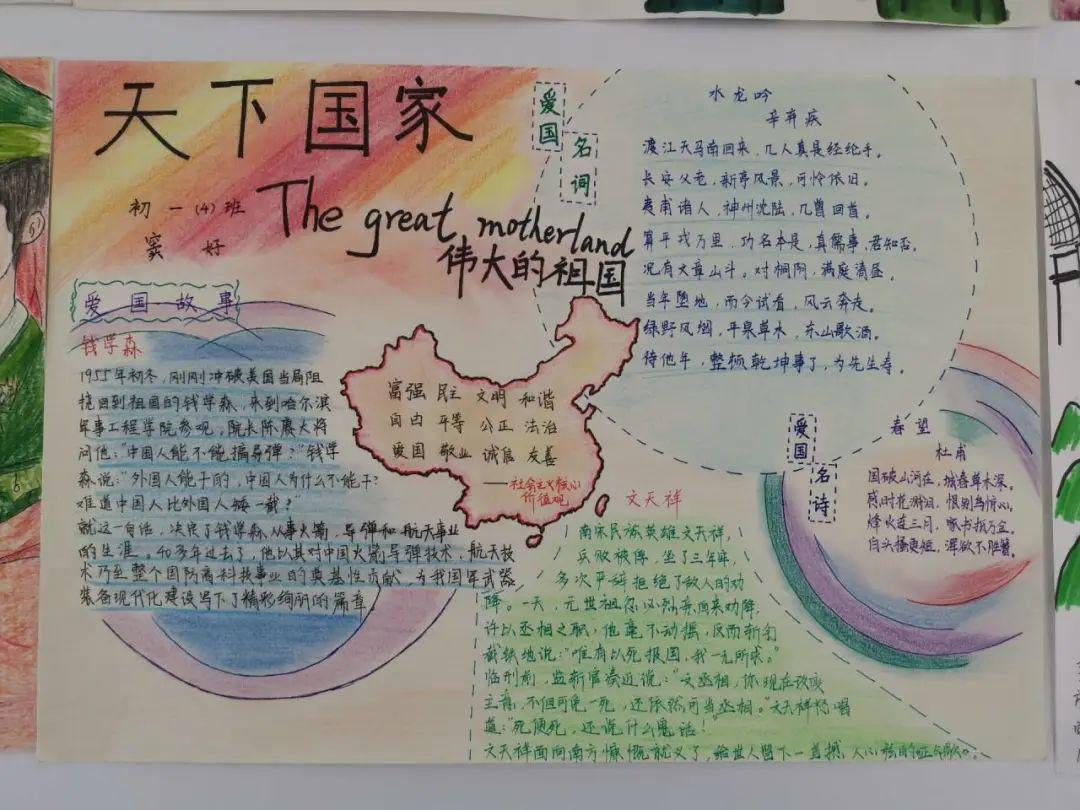 天下国家
初一(4)班
窦好
The great motherland
伟大的祖国
爱国故事
钱学森
1955年初冬，刚刚冲破美国当局阻
挠回到祖国的钱学森，来到哈尔滨
军事工程学院参观，院长陈赓大将
问他："中国人能不能搞导弹？"钱学
森说："外国人能干的，中国人为什么不能干？
难道中国人比外国人矮一截？"
就这一句话，决定了钱学森从事火箭，导弹和航天事业
的生涯。40多年过去了，他以其对中国火箭导弹技术，航天技
术乃至整个国防高科技事业的奠基性贡献，为我国军武器
装备现代化建设写下了精彩绚丽的篇章。
富强 民主 文明 和谐
自由 平等 公正 法治
爱国 敬业 诚信 友善
——社会主义核心
价值观
爱国
名词
水龙吟
辛弃疾
渡江天马南回来，几人真是经纶手。
长安父老，新亭风景，可怜依旧。
夷甫诸人，神州沈陆，几曾回首。
算平戎万里，功名本是，真儒事，君知否。
况有文章山斗。对桐阴，满庭清昼。
当年堕地，而今试看，风云奔走。
绿野风烟，平泉草木，东山歌酒。
待他年，整顿乾坤事了，为先生寿。
爱国
名诗
春望
杜甫
国破山河在，城春草木深。
感时花溅泪，恨别鸟惊心。
烽火连三月，家书抵万金。
白头搔更短，浑欲不胜簪。
文天祥
南宋民族英雄文天祥，
兵败被俘，坐了三年牢，
多次严辞拒绝了敌人的劝
降。一天，元世祖忽必烈亲自来劝降，
许以丞相之职，他毫不动摇，反而斩钉
截铁地说："唯有以死报国，我一无所求。"
临刑前，监斩官凑近说："文丞相，你现在改变
主意，不但可免一死，还依然可当丞相。"文天祥怒喝
道："死便死，还说什么鬼话！"
文天祥面向南方慷慨就义了，给世人留下一首撼人心弦的正气歌。